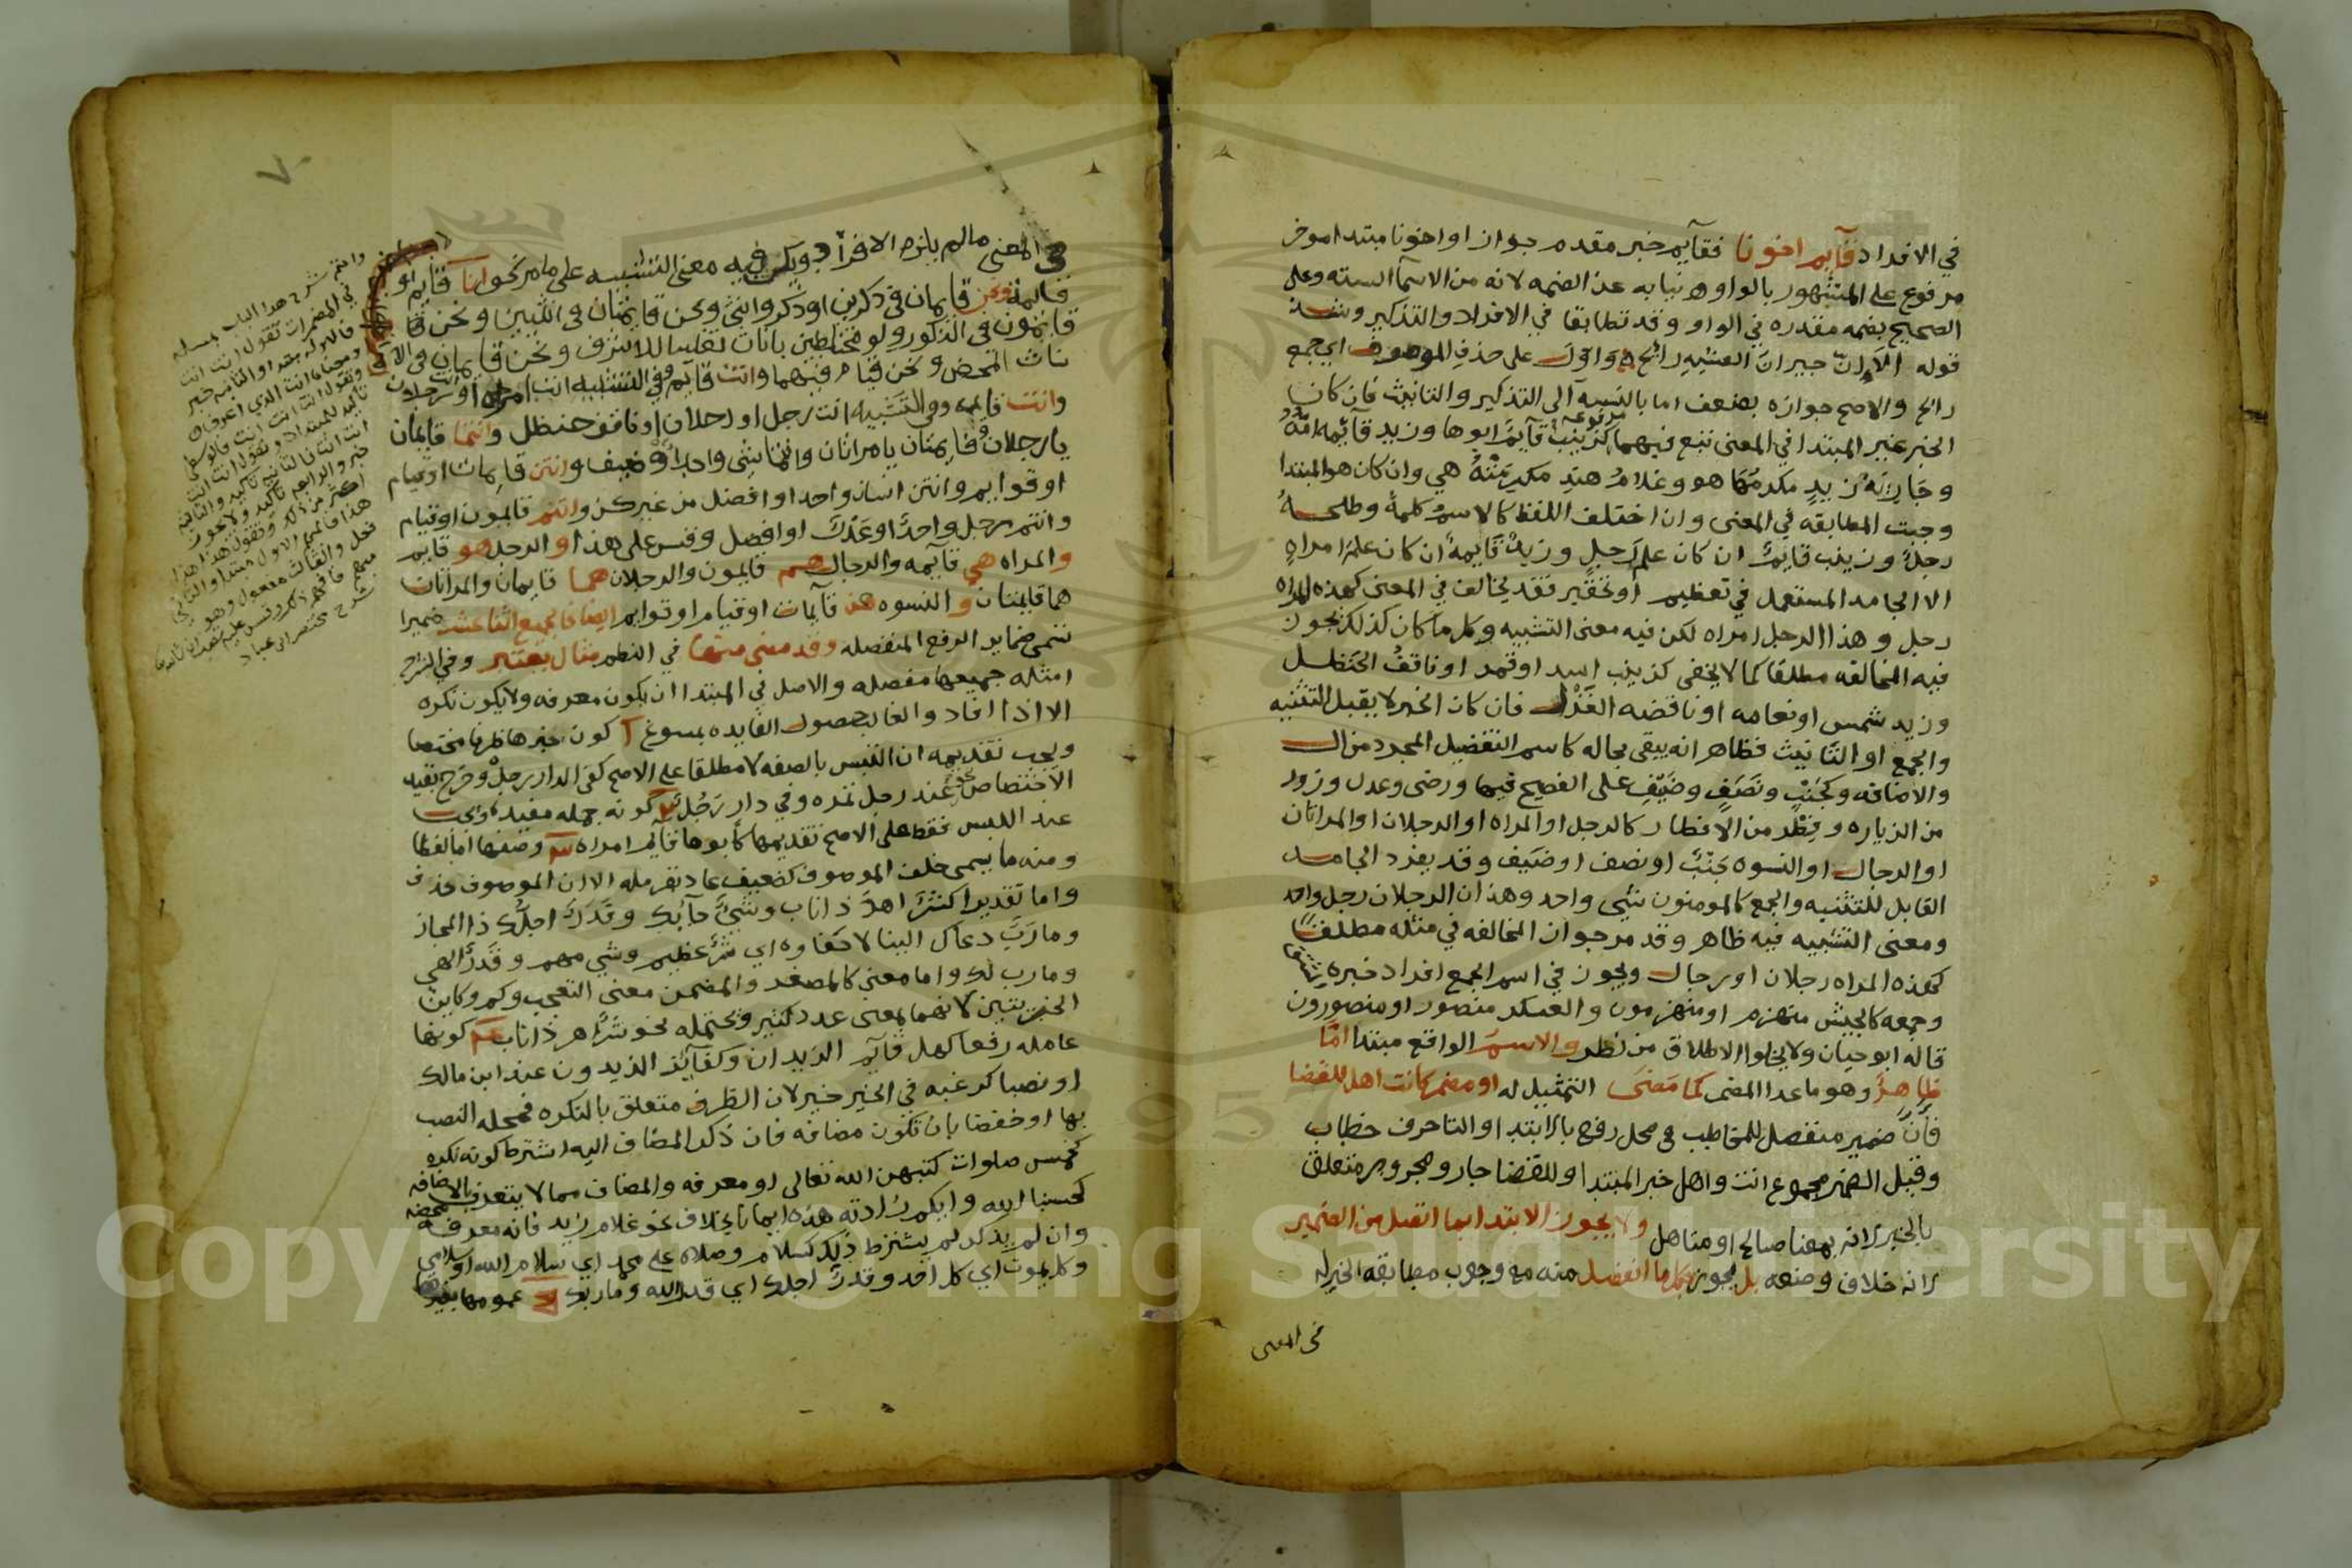 في الافراد قآيم اخونا فقآيم خبر مقدم جوازا واخونا مبتدا موخر
مرفوع على المشهور بالواو نيابه عن الضمه لانه من الاسمآ السته وعلى
الصحيح بضمه مقدره في الواو وقد تطابقا في الافراد والتذكير وشذ
قوله جيران العشيه رائح على حذف الموصوف اي جمع
رائح والاصح جوازه بضعف اما بالنسبه الى التذكير والتانيث فان كان
الخبر غير المبتدا في المعنى تبع فيهما مرفوعه كزينب قآيم ابوها وزيد قآئمه امه
وجارية زيد مكرمها هو وغلام هند مكرمته هي وان كان هو المبتدا
وجبت المطابقه في المعنى وان اختلف اللفظ كالاسم كلمة وطلحة
رجل وزينب قايم ان كان علم رجل وزيد قايمة ان كان علم امراه
الا الجامد المستعمل في تعظيم او تحقير فقد يخالف في المعنى كهذه المراه
رجل وهذا الرجل امراه لكن فيه معنى التشبيه وكل ما كان كذلك يجوز
فيه المخالفه مطلقا كما لا يخفى كزينب اسد او قمر او ناقف الحنظل
وزيد شمس او نعامه او ناقضه الغزل فان كان الخبر لا يقبل التثنيه
والجمع او التانيث فظاهر انه يبقى بحاله كاسم التفضيل المجرد من ال
والاضافه وكجنب ونصف وضيف على الفصيح فيها ورضى وعدل وزور
من الزياره وفطر من الافطار كالرجل او المراه او الرجلان او المراتان
او الرجال او النسوه جنب او نصف او ضيف وقد يفرد الجامد
القابل للتثنيه والجمع كالمومنون شي واحد وهذان الرجلان رجل واحد
ومعنى التشبيه فيه ظاهر وقد مر جواز المخالفه في مثله مطلقا
كهذه المراه رجلان او رجال ويجوز في اسم الجمع افراد خبره
وجمعه كالجيش منهزم او منهزمون والعسكر منصور او منصورون
قاله ابو حيان ولا يخلوا الاطلاق من نظر والاسم الواقع مبتدا اما
ظاهر وهو ما عدا المضمر كما مضى التمثيل له او مضمر كانت اهل للقضا
فان ضمير منفصل للمخاطب في محل رفع بالابتدا والتا حرف خطاب
وقيل الضمير مجموع انت واهل خبر المبتدا وللقضا جار ومجرور متعلق
بالخبر لانه بمعنا صالح او متاهل ولا يجوز الابتدا بما اتصل من الضمير
لانه خلاف وضعه بل يجوز بكل ما انفصل منه مع وجوب مطابقه الخبر له
في المعنى
٧٠
في المعنى مالم يلزم الافراد ويكن فيه معنى التشبيه على ما مر نحو انا قايم او
قايمة ونحن قايمان في ذكرين او ذكر وانثى ونحن قايمتان في انثيين ونحن
قايمون في الذكور ولو مختلطين باناث تغليبا للاشرف ونحن قايمات في الا
ناث المحض ونحن قيام فيهما وانت قآيم وفي التشبيه انت امراه او رجلان
وانت قايمه وفي التشبيه انت رجل او رجلان او ناقف حنظل وانتما قايمان
يا رجلان وقايمتان يا مراتان وانتما شي واحد او ضيف وانتن قايمات او قيام
او قوايم وانتن انسان واحد او افضل من غيركن وانتم قايمون او قيام
وانتم رجل واحد او عدل او افضل وقس على هذا والرجل هو قايم
والمراه هي قآيمه والرجال هم قايمون والرجلان هما قايمان والمراتان
هما قايمتان والنسوه هن قآيمات او قيام او قوايم ايضا فالجميع اثنا عشر ضميرا
تسمى ضماير الرفع المنفصله وقد مضى منها في النظم مثال يعتبر وفي الشرح
امثله جميعها مفصله والاصل في المبتدا ان يكون معرفه ولا يكون نكره
الا اذا افاد والغالب حصول الفايده بمسوغ كون خبرها ظرفا مختصا
ويجب تقديمه ان التبس بالصفه لا مطلقا على الاصح كفي الدار رجل وخرج بقيد
الاختصاص نحو عند رجل نمره وفي دار رجل كونه جمله مفيده
عند اللبس فقط على الاصح تقديمها كابوها قايم امراه وصفها اما لفظا
ومنه ما يسمى خلف الموصوف كضعيف عاد بقرمله الا ان الموصوف حذف
واما تقديرا كشر اهر ذا ناب وشيء جآ بك وقدر احلك ذا المجاز
وما رب دعاك الينا لا حفاوه اي شر عظيم وشي مهم وقدر الهي
ومارب لك واما معنى كالمصغر والمضمن معنى التعجب وكم وكاين
الخبريتين لانهما بمعنى عدد كثير ويحتمله نحو شر اهر ذا ناب كونها
عامله رفعا كهل قآيم الزيدان وكفآيز الزيدون عند ابن مالك
او نصبا كرغبه في الخير خير لان الظرف متعلق بالنكره فمحله النصب
بها او خفضا بان تكون مضافه فان ذكر المضاف اليه اشترط كونه نكره
كخمس صلوات كتبهن الله تعالى او معرفه والمضاف مما لا يتعرف بالاضافه
كحسبنا الله وايكم زادته هذه ايمانا بخلاف نحو غلام زيد فانه معرفه محضه
وان لم يذكر لم يشترط ذلك كسلام وصلاه على محمد اي سلام الله او سلامي
وكل يموت اي كل احد وقدر احلك اي قدر الله ومارب عمومها
شرح هذا الباب مسله
في المضمرات تقول انت انت
فالاوله مبتدا والثانيه خبر
ومعناه انت الذي اعرف
وتقول انت انت انت فالوسطى
تاكيد للمبتدا وتقول انت انت
انت انت فالثانيه تاكيد والثالثه
خبر والرابعه تاكيد ولا يجوز
اكثر من ذلك وتقول هذا هذا
هذا فالاول مبتدا والثاني
شرح مختصر ابن عباد